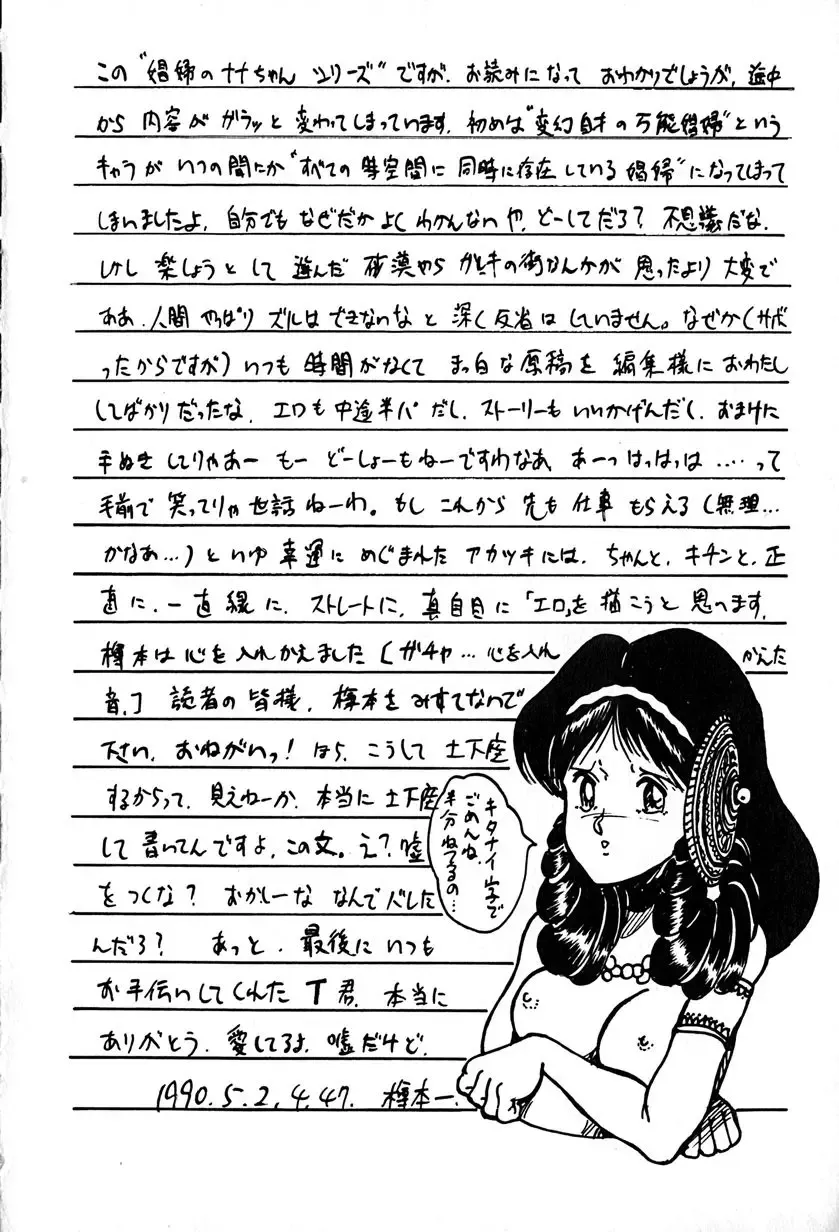 この"娼婦のナナちゃんシリーズ"ですが、お読みになっておわかりでしょうが、途中
から内容がガラッと変わってしまっています。初めは"変幻自才の万能娼婦"という
キャラがいつの間にか"すべての時空間に同時に存在している娼婦"になってしまって
しまいましたよ、自分でもなぜだかよくわかんないや、どーしてだろ?不思議だな。
しかし楽しようとして選んだ砂漠やらガレキの街なんかが思ったより大変で
ああ、人間やっぱりズルはできないなと深く反省はしていません。なぜか(サボ
ったからですが)いつも時間がなくてまっ白な原稿を編集様におわたし
してばかりだったな、エロも中途半パだし、ストーリーもいいかげんだし、おまけに
手ぬきしてりゃあーもーどーしょーもねーですわなあ、あーっはっはっは‥‥って
手前で笑ってりゃ世話ねーわ。もしこれから先も仕事もらえる(無理…
かなあ…)といゆ幸運にめぐまれたアカツキには、ちゃんと、キチンと、正
直に、一直線に、ストレートに、真自目に「エロ」を描こうと思へます。
樽本は心を入れかえました(ガチャ…心を入れ かえた
音。)読者の皆様、樽本をみすてないで
下さい、おねがいっ!ほら、こうして土下座
するからって、見えねーか、本当に土下座
して書いてんですよ、この文。え?嘘
をつくな?おかしーななんでバレた
んだろ?あっと、最後にいつも
お手伝いしてくれたT君、本当に
ありがとう。愛してるよ、嘘だけど。
1990.5.2.4.47. 樽本一.
キタナイ字で
ごめんね。
半分ねてるの…